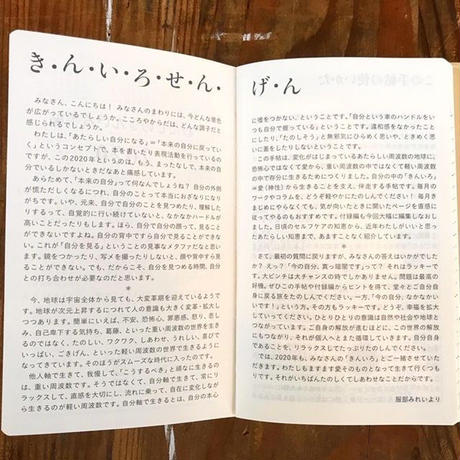 き・ん・い・ろ・せ・ん・
みなさん、こんにちは! みなさんのまわりには、今どんな景色
が広がっているでしょうか。こころやからだは、どんな調子だと
感じられるでしょうか。
わたしは、「あたらしい自分になる」=「本来の自分に戻ってい
く」というコンセプトで、本を書いたり表現活動を行っているの
ですが、この2020年というのは、もう、まったなしで、本来の自
分でいるしかないときだなあと痛感しています。
あらためて、「本来の自分」って何なんでしょうね? 自分の外側
が慌ただしくなるにつれ、自分のことって本当におざなりになり
がちです。いや、元来、自分で自分のことを見つめたり、理解した
りするって、自覚的に行い続けていないと、なかなかハードルが
高いことだったりもします。ほら、自分で自分の顔って、見るこ
とができないですよね。自分の背中ですら自分で見ることができ
ない。これが「自分を見る」ということの見事なメタファだなと思い
ます。鏡をつかったり、写メを撮ったりしないと、顔や背中すら見
ることができない。でも、だからこそ、自分を見つめる時間、自分
との打ち合わせが必要なのだと思います。
*
今、地球は宇宙全体から見ても、大変革期を迎えているようで
す。地球が次元上昇するにつれて人の意識も大きく変革・拡大し
つつあります。簡単にいえば、不安、恐怖心、罪悪感、怒り、悲し
み、自己卑下する気持ち、葛藤、といった重い周波数の世界を生き
るのではなく、たのしい、ワクワク、しあわせ、うれしい、喜びで
いっぱい、ごきげん、といった軽い周波数の世界で生きるように
なってきています。そのほうがスムーズな時代に入ったのです。
他人軸で生きて、我慢して、「こうするべき」と頑なに生きるの
は、重い周波数です。そうではなくて、自分軸で生きて、常にリ
ラックスして、直感を大切にし、流れに乗って、自在に変化しなが
ら生きるのが軽い周波数です。自分軸で生きるとは、自分の本心
げ・ん
に嘘をつかない、ということです。「自分という車のハンドルをい
つも自分で握っている」ということです。違和感をなかったこと
にしたり、「たのしそう」と無邪気にひらめく思いや、ときめく思い
に蓋をしたりしないということです。
この手帖は、変化がはじまっているあたらしい周波数の地球に
恐怖心ではなくて愛から、重い周波数の中ではなくて軽い周波数
の中で存分に生きるためにつくりました。自分の中の「きんいろ」
=愛(神性)から生きることを支え、伴走する手帖です。毎月の
ワークやコラムを、どうぞ軽やかにやってくださいね! 毎月き
まじめにやらなくても、できたときに開いたページを直感に
従ってやるのもおすすめです。付録編も今回大幅に編集しなおし
ました。日頃のセルフケアの知恵から、近年わたしがいいと思っ
たあたらしい知恵まで、あますことなく紹介しています。
*
さて、最初の質問に戻りますが、みなさんの答えはいかがでした
か? えっ? 「今の自分、真っ暗闇です」って? それはラッキーで
す。大ピンチは大チャンスのときでしかありません。問題は最高の
好機。ぜひこの手帖や付録編からヒントを得て、堂々とご自分自
身に戻る旅をたのしんでください。一方、「今の自分、なかなかい
いです!」という方、その方もラッキーです。どうぞ、幸福を拡大
していってください。ひとりひとりの意識は自然や社会や地球と
つながっています。ご自身の解放が進むほどに、この世界の解放
にもつながり、それが個人へとまた循環していきます。自分自身
であることを、リラックスしてたっぷりのしんでください。
では、2020年も、みなさんの「きんいろ」とご一緒させていた
だきます。わたしもますます愛そのものとなって生きて行くつも
りです。それがいちばんたのしくてしあわせなことだからです。
服部みれいより